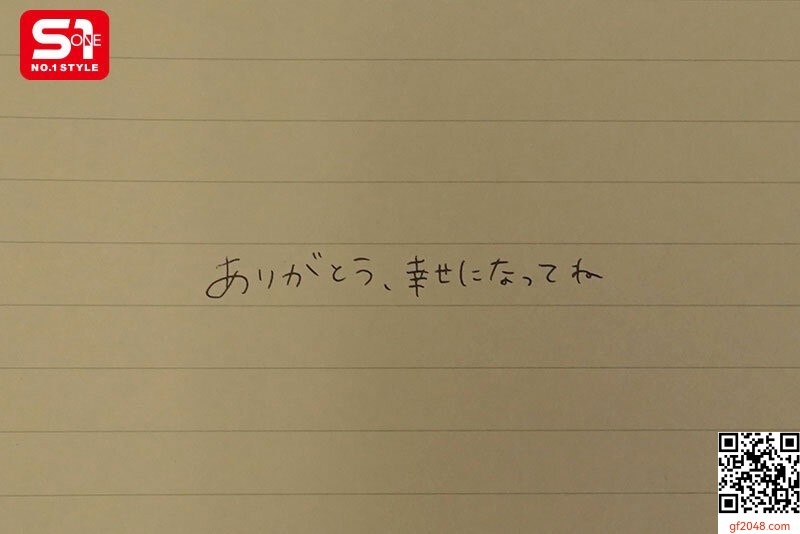 S1
ONE
NO.1 STYLE
ありがとう、幸せになってね
gf2048.com